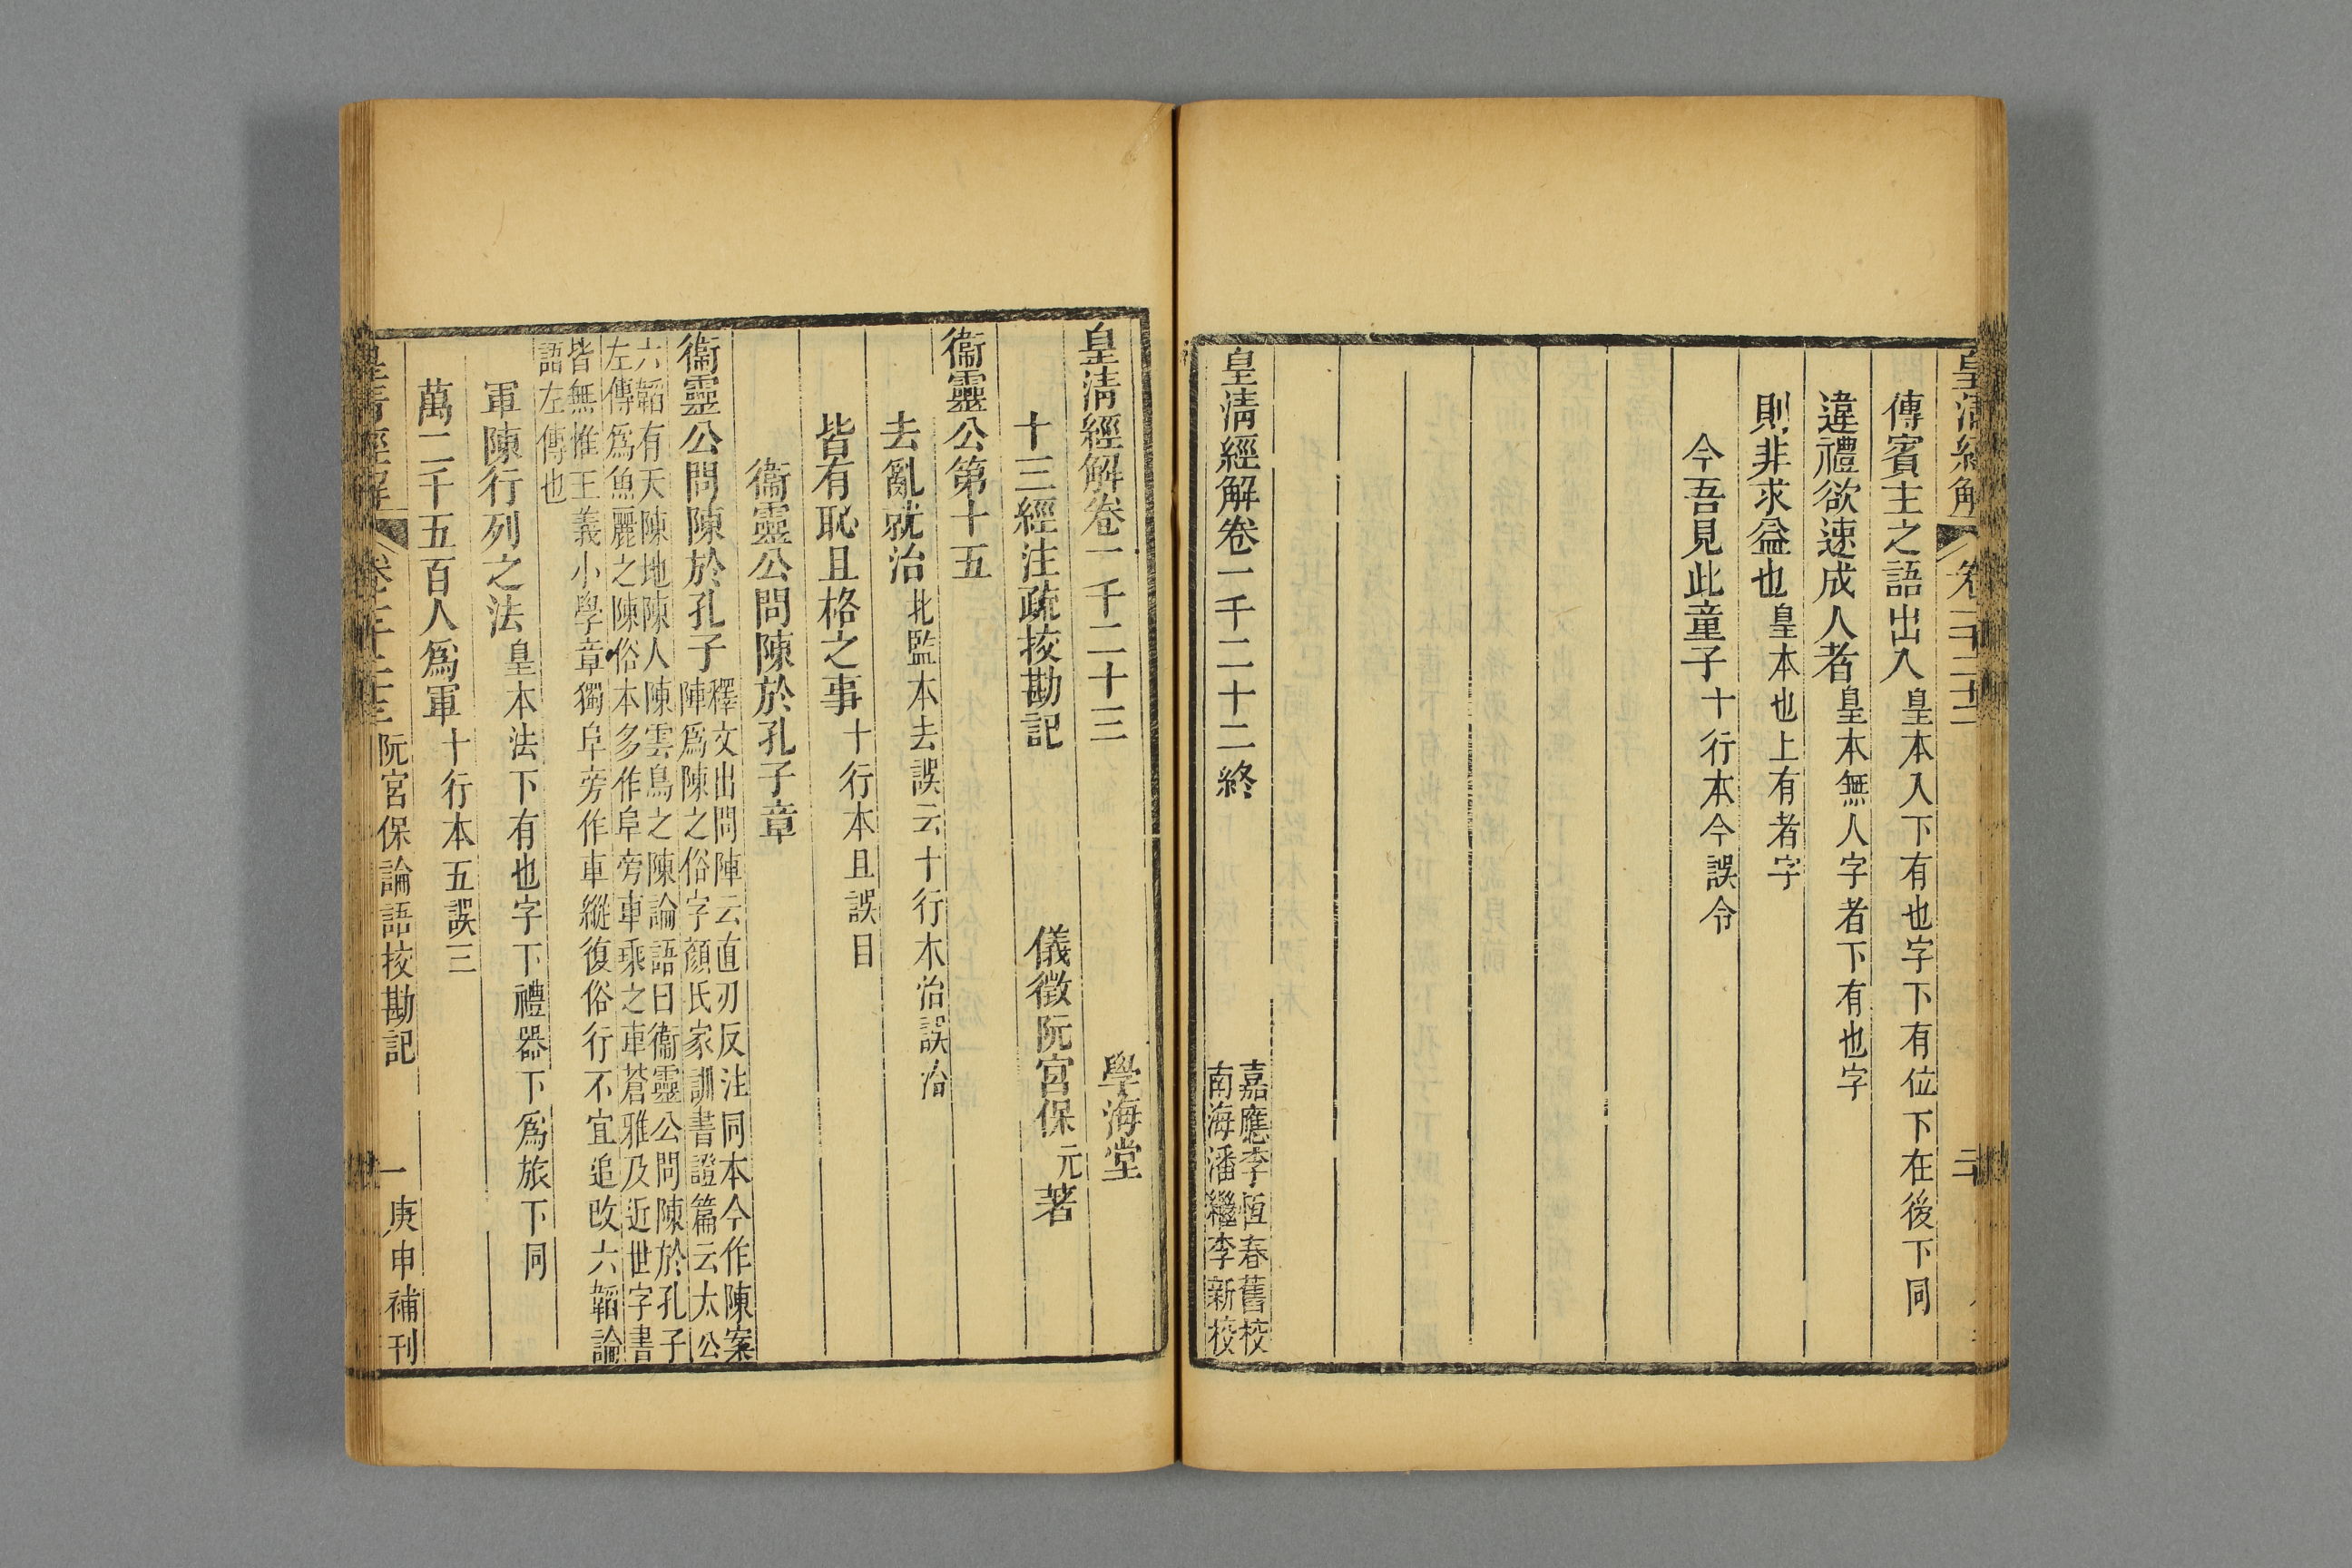 傳賓主之語出入皇本入下有也字下有位下在後下同
違禮欲速成人者皇本無人字者下有也字
則非求益也皇本也上有者字
今吾見此童子十行本今誤令
皇清經解卷一千二十二終
嘉應李恆春舊校
南海潘繼李新校
皇清經解卷一千二十三
學海堂
十三經注疏挍勘記
儀徵阮宮保元著
衞靈公第十五
去亂就治北監本去誤云十行本治誤洽
皆有恥且格之事十行本且誤目
衞靈公問陳於孔子章
衞靈公問陳於孔子
釋文出問陣云直刃反注同本今作陳案
陣爲陳之俗字顔氏家訓書證篇云太公
六韜有天陳地陳人陳雲鳥之陳論語曰衞靈公問陳於孔子
左傳爲魚麗之陳俗本多作阜旁車乘之車蒼雅及近世字書
皆無惟王羲小學章獨阜旁作車縱復俗行不宜追改六韜論
語左傳也
軍陳行列之法皇本法下有也字下禮器下爲旅下同
萬二千五百人爲軍十行本五誤三
皇清經解
阮宮保論語挍勘記
一
庚申補刊